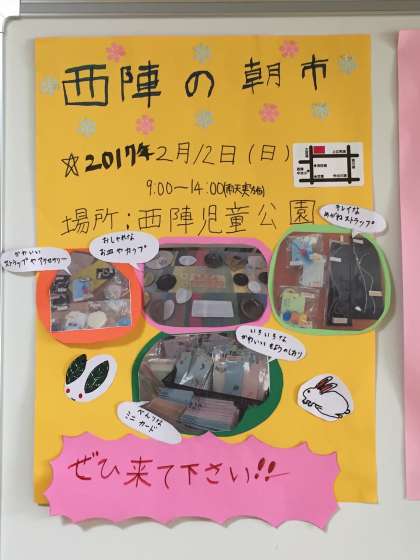 西陣の朝市
☆2017年2月12日(日)
9:00〜14:00(雨天実施)
場所;西陣児童公園
かわいい
ストラップやアクセサリー
おしゃれな
お皿やカップ
キレイな
めがねストラップ
いろいろな
かわいいもようのしおり
べんりな
ミニカード
ぜひ来て下さい!!